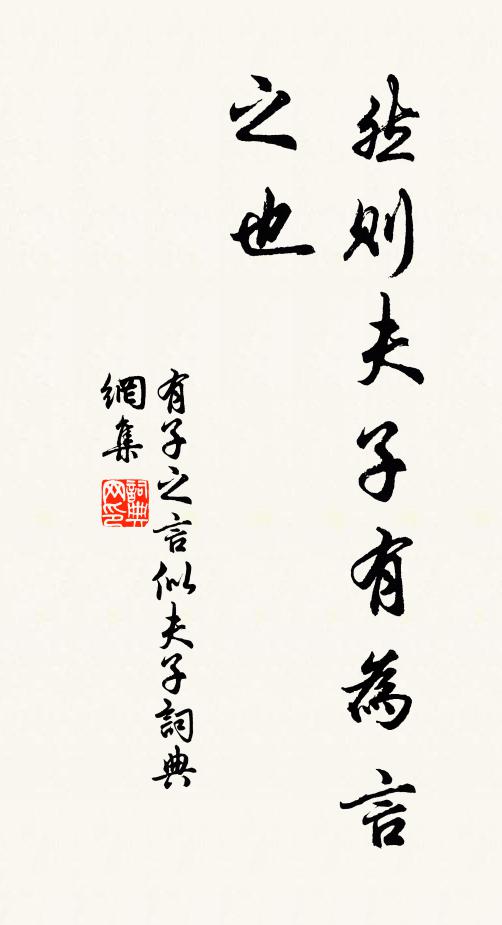 然則夫子有為言
之也
有子之言似夫子詞典
網集
詞典
网印